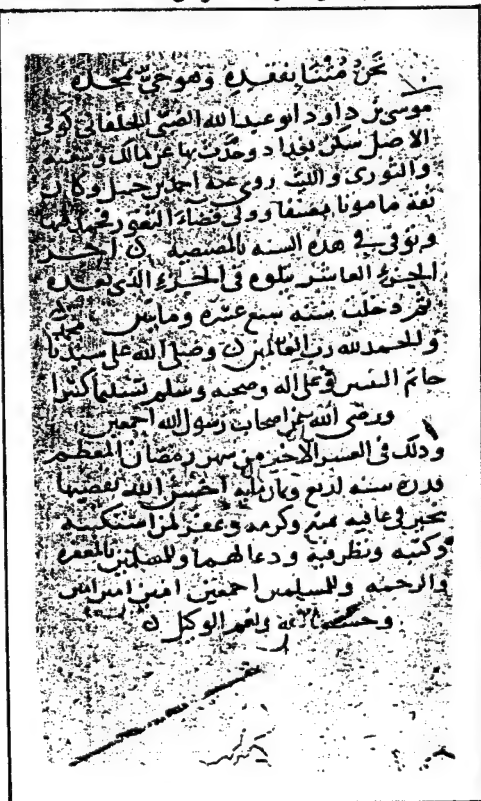 نحن متنا بفقده وهو حي بمجده
موسى بن داود ابو عبد الله الضبي الخلقاني كوفي
الاصل سكن بغداد وحدث بها عن مالك وشعبة
والثوري والليث روى عنه احمد بن حنبل وكان
ثقة مامونا مصنفا وولى قضاء الثغور فحمد فيها
وتوفي في هذه السنه بالمصيصه اخر
الجزء العاشر يتلوه في الجزء الذي بعده
ثم دخلت سنة سبع عشرة ومايتين
والحمد لله رب العالمين وصلى الله على سيدنا محمد
خاتم النبيين وعلى اله وصحبه وسلم تسليما كثيرا
ورضى الله عن اصحاب رسول الله اجمعين
وذلك في العشر الاخير من شهر رمضان المعظم
قدره سنه اربع وثمان مايه احسن الله تقضيها
بخير في عافيه بمنه وكرمه وغفر لمن استكتبه
وكتبه ونظر فيه ودعا لهما وللمسلمين بالمغفره
والرحمه وللمسلمين اجمعين امين امين امين
وحسبنا الله ونعم الوكيل